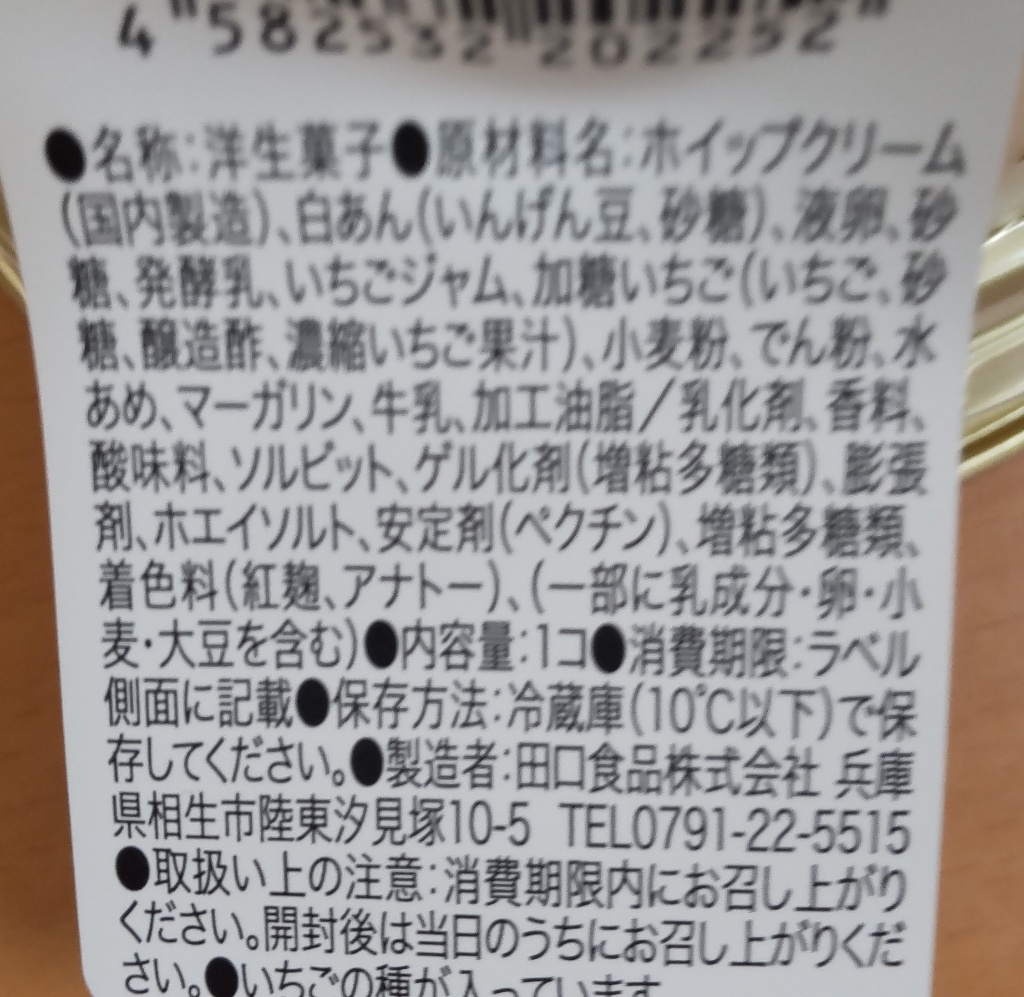 4 582532 202252
●名称:洋生菓子●原材料名:ホイップクリーム
(国内製造)、白あん(いんげん豆、砂糖)、液卵、砂
糖、発酵乳、いちごジャム、加糖いちご(いちご、砂
糖、醸造酢、濃縮いちご果汁)、小麦粉、でん粉、水
あめ、マーガリン、牛乳、加工油脂/乳化剤、香料、
酸味料、ソルビット、ゲル化剤(増粘多糖類)、膨張
剤、ホエイソルト、安定剤(ペクチン)、増粘多糖類、
着色料(紅麹、アナトー)、(一部に乳成分・卵・小
麦・大豆を含む)●内容量:1コ●消費期限:ラベル
側面に記載●保存方法:冷蔵庫(10℃以下)で保
存してください。●製造者:田口食品株式会社 兵庫
県相生市陸東汐見塚10-5 TEL0791-22-5515
●取扱い上の注意:消費期限内にお召し上がり
ください。開封後は当日のうちにお召し上がりくだ
さい。●いちごの種が入っています